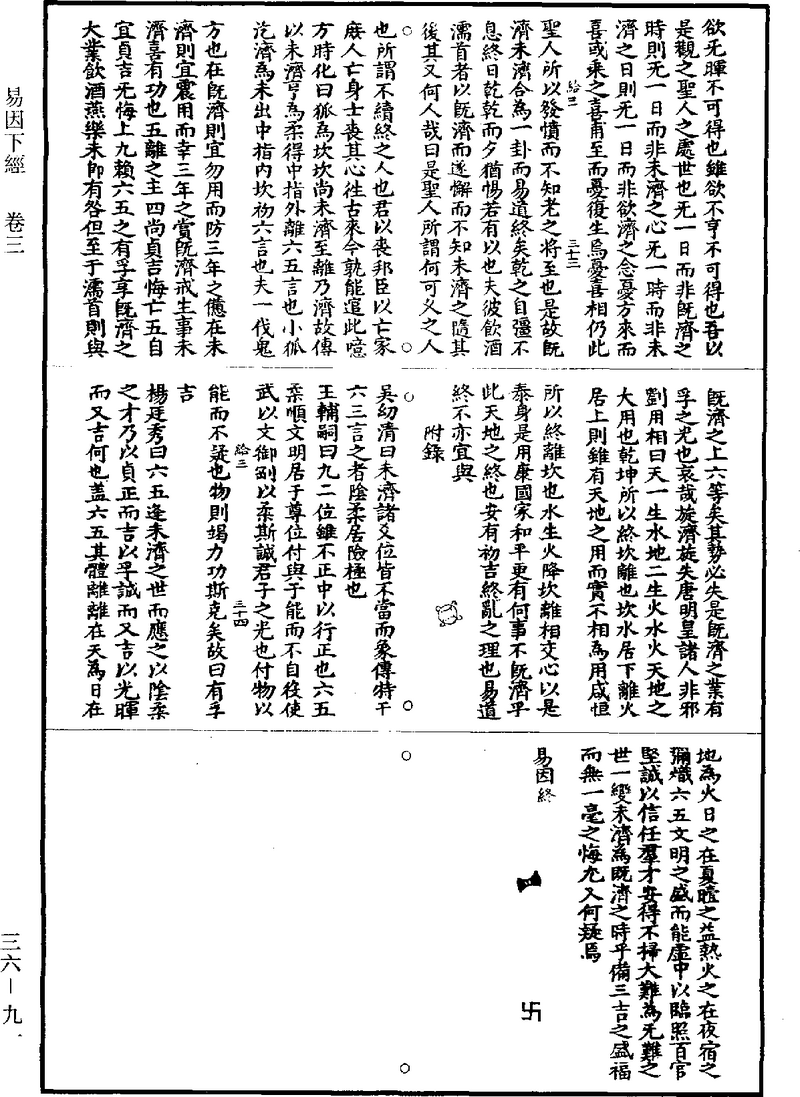 欲旡暉不可得也雖欲不亨不可得也吾以
是觀之聖人之處世也旡一日而非旣濟之
時則旡一日而非未濟之心旡一時而非未
濟之日則旡一日而非欲濟之念憂方來而
喜或乘之喜甫至而憂復生烏憂喜相仍此
給三
三十三
聖人所以發憤而不知老之將至也是故旣
濟未濟合為一卦而易道終矣乾之自彊不
息終日乾乾而夕猶惕若有以也夫彼飲酒
濡首者以旣濟而遂懈而不知未濟之隨其
後其又何人哉曰是聖人所謂何可乂之人
也所謂不續終之人也君以喪邦臣以亡家
庻人亡身士喪其心徃古來今孰能逭此噫
方時化曰狐為坎坎尚未濟至離乃濟故傳
以未濟亨為柔得中指外離六五言也小狐
汔濟為未出中指内坎初六言也夫一伐鬼
方也在旣濟則宜勿用而防三年之憊在未
濟則宜震用而幸三年之賞旣濟戒生事未
濟喜有功也五離之主四尚貞吉悔亡五自
宜貞吉旡悔上九賴六五之有孚享旣濟之
大業飲酒燕樂未即有咎但至于濡首則與
旣濟之上六等矣其勢必失是旣濟之業有
孚之光也哀哉旋濟旋失唐明皇諸人非邪
劉用相曰天一生水地二生火水火天地之
大用也乾坤所以終坎離也坎水居下離火
居上則雖有天地之用而實不相為用咸恒
所以終離坎也水生火降坎離相交心以是
泰身是用康國家和平更有何事不旣濟乎
此天地之終也安有初吉終亂之理也易道
終不亦宜與
附錄
吳幼清曰未濟諸爻位皆不當而象傳特于
六三言之者陰柔居險極也
王輔嗣曰九二位雖不正中以行正也六五
柔順文明居于尊位付與于能而不自役使
武以文御剛以柔斯誠君子之光也付物以
給三
三十四
能而不疑也物則竭力功斯克矣故曰有孚
吉
楊廷秀曰六五逢未濟之世而應之以陰柔
之才乃以貞正而吉以孚誠而又吉以光暉
而又吉何也蓋六五其體離離在天為日在
地為火日之在夏曀之益熱火之在夜宿之
彌熾六五文明之盛而能虛中以臨照百官
堅誠以信任羣才安得不掃大難為旡難之
世一變未濟為旣濟之時乎備三吉之盛福
而無一毫之悔尤又何疑焉
易因終
卍
易因下經 卷三
三六－九一